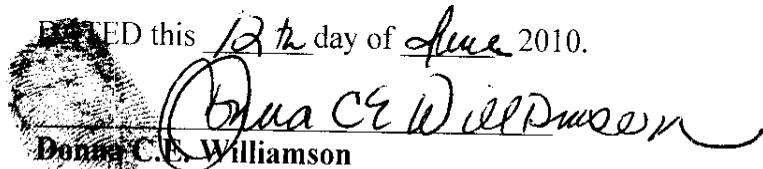 DATED this 12th day of June 2010.
Donna CE Williamson
Donna C.E. Williamson